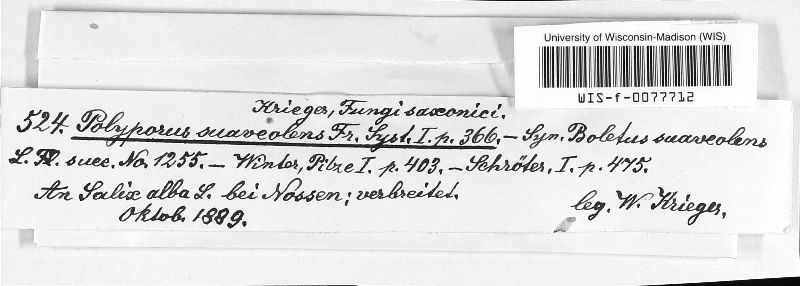 University of Wisconsin-Madison (WIS)
WIS-f-0077712
Krieger, Fungi saxonici.
524. Polyporus suaveolens Fr. Syst. I. p. 366. – Syn. Boletus suaveolens
L. Fl. suec. No. 1255. – Winter, Pilze I. p. 403. – Schröter, I. p. 475.
An Salix alba L. bei Nossen; verbreitet.
Oktob. 1889.
leg. W. Krieger.